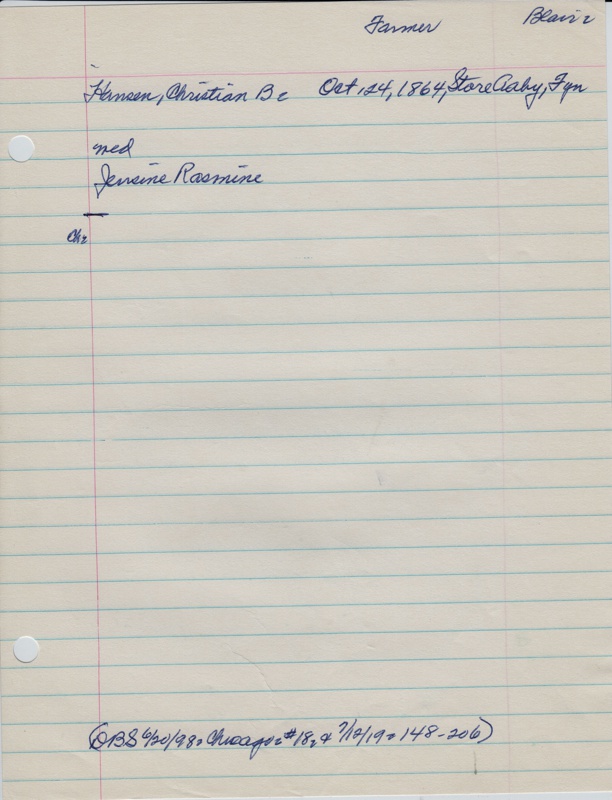 Farmer Blair,
Hansen, Christian B. Oct. 24, 1864, Store Aaby, Fyn
med
Jensine Rasmine
Ch.
(DBS 6/20/98, Chicago, #18, & 7/12/19, 148-206)